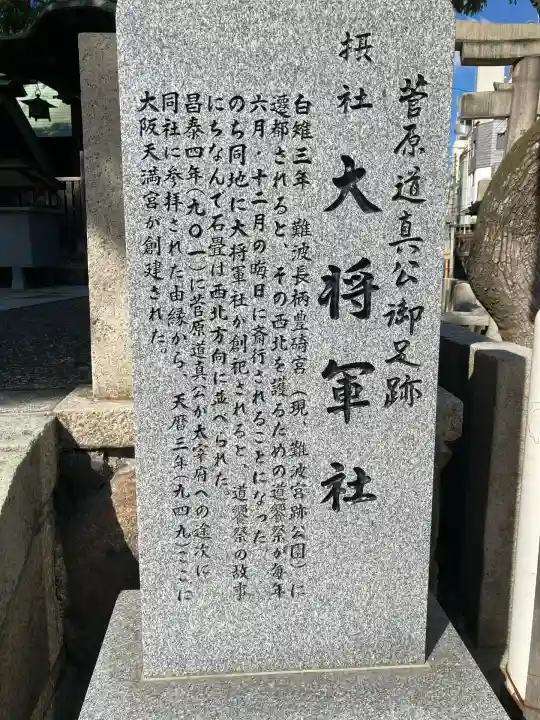 菅原道真公御足跡
摂社 大将軍社
白雉三年 難波長柄豊碕宮（現、難波宮跡公園）に
遷都されると、その西北を護るための道饗祭が毎年
六月・十二月の晦日に斎行されることになった。
のち同地に大将軍社が創祀されると、道饗祭の故事
にちなんで石畳は西北方向に並べられた。
昌泰四年（九〇一）に菅原道真公が太宰府への途次に
同社に参拝された由縁から、天暦三年（九四九）ここに
大阪天満宮が創建された。